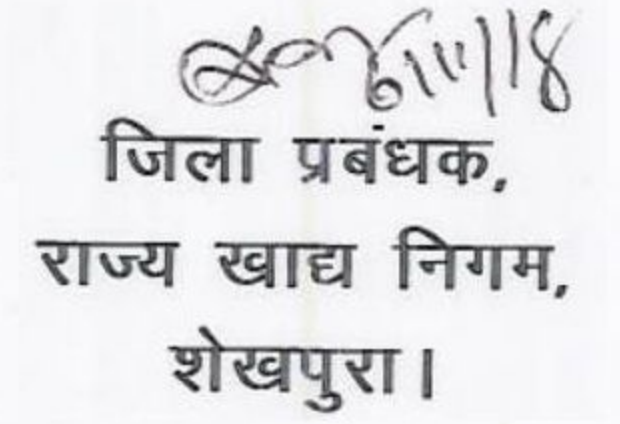 जिला प्रबंधक,
राज्य खाद्य निगम,
शेखपुरा।